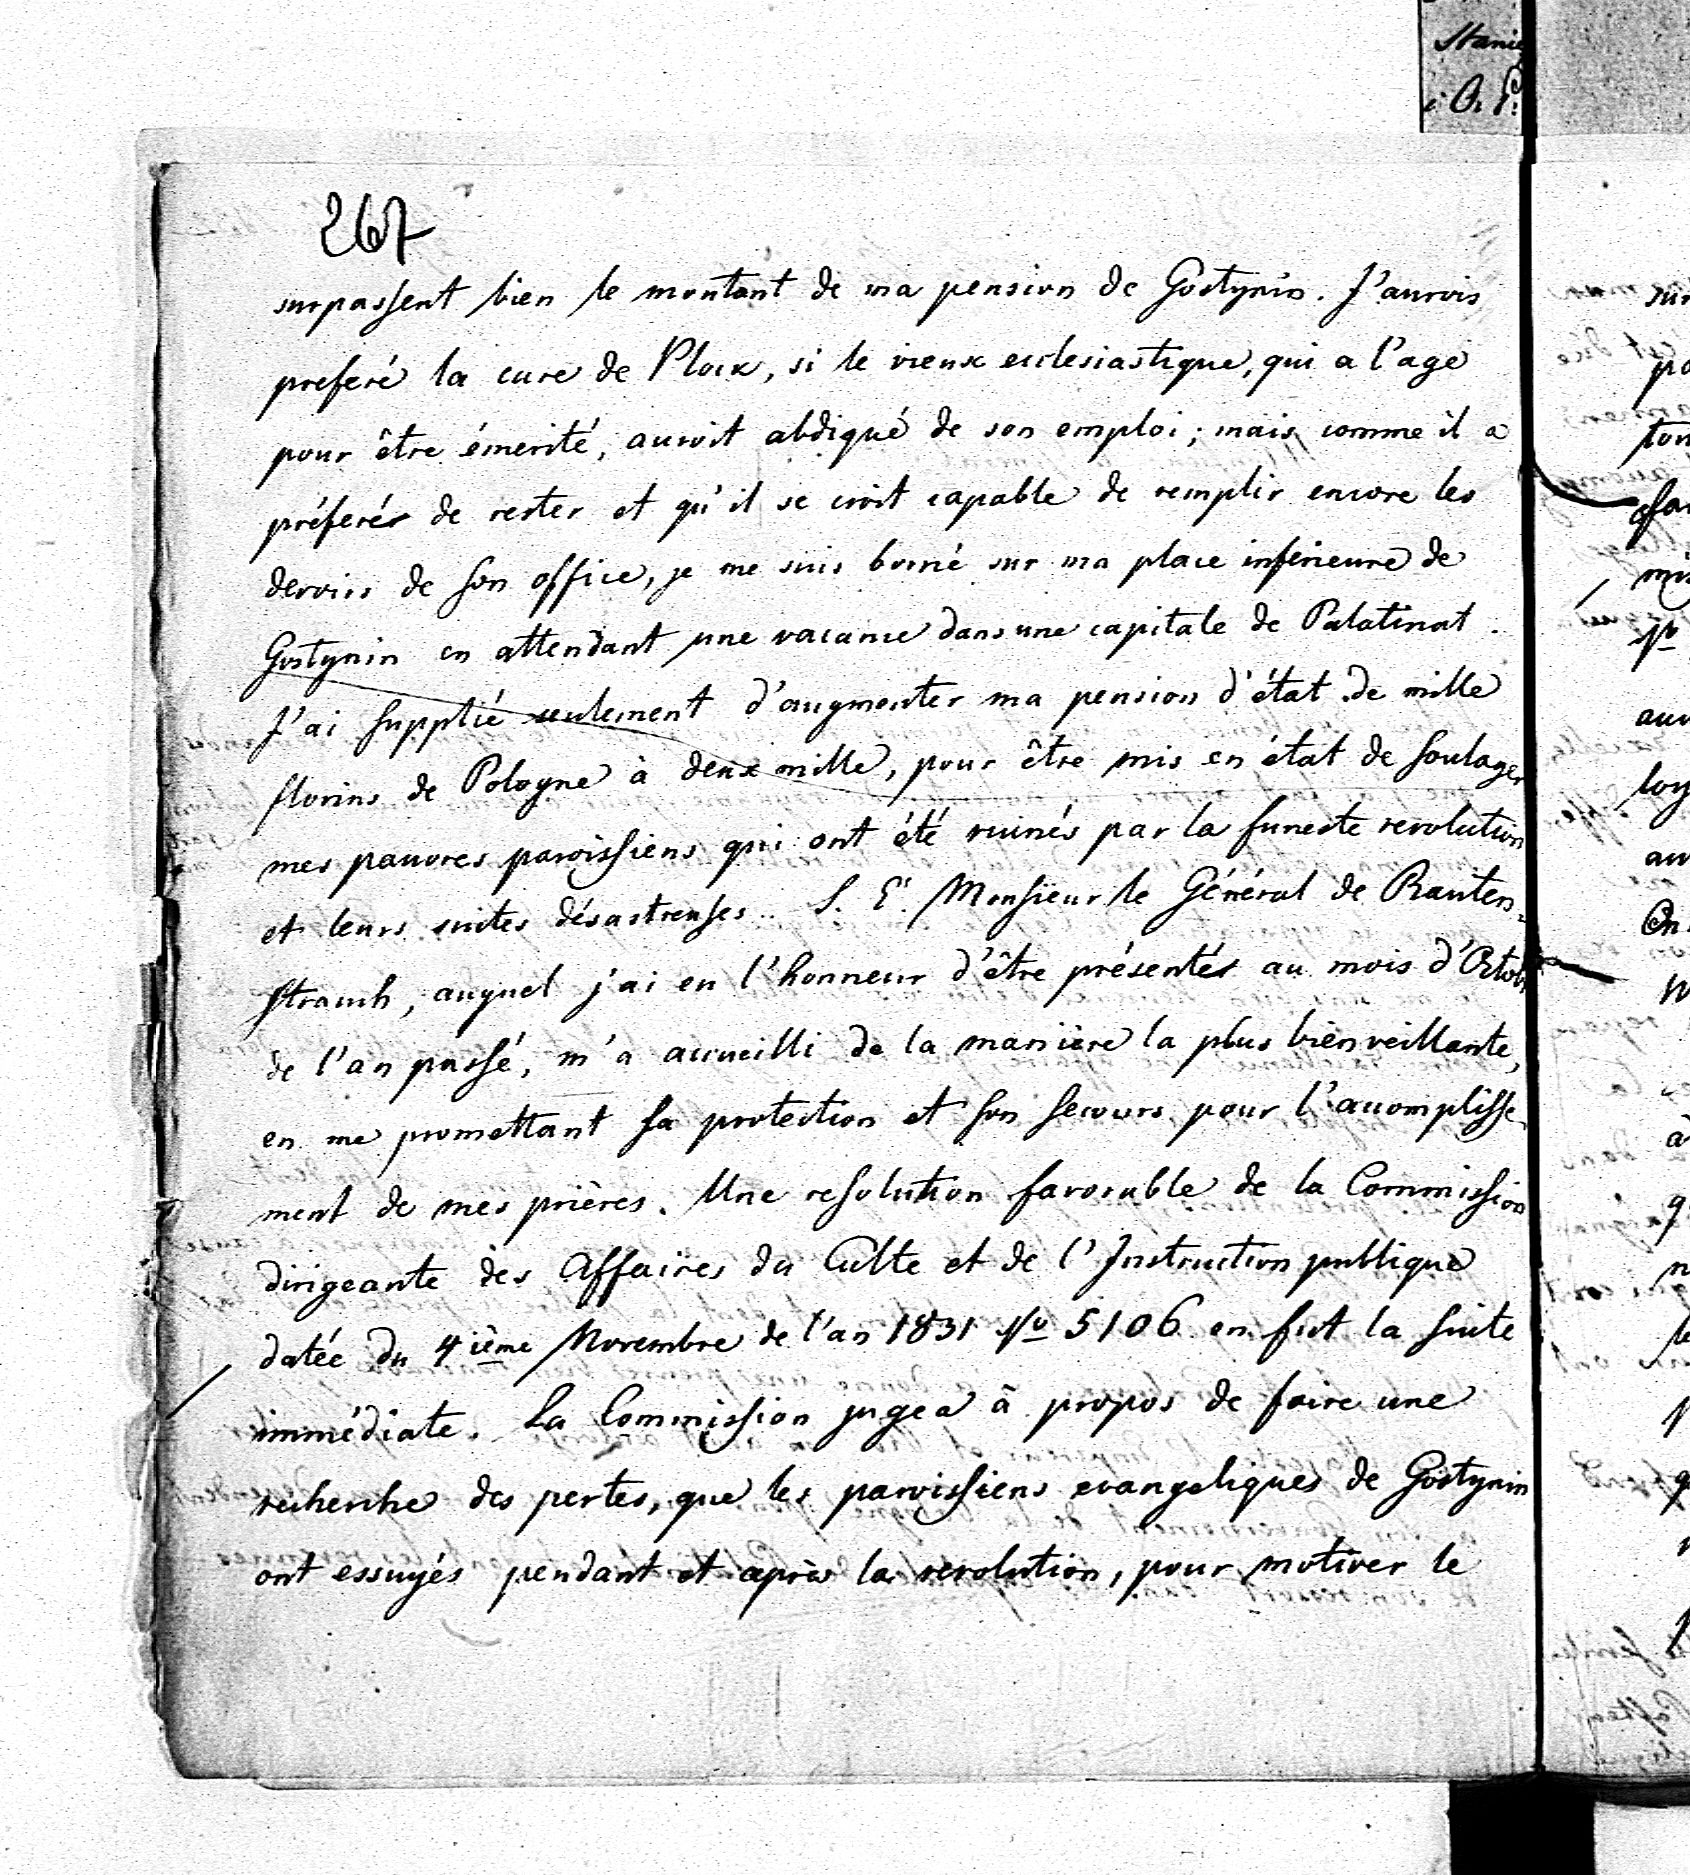 Stanis
i O. P.
267
surpassent bien le montant de ma pension de Gostynin. J'aurois
preferé la cure de Plock, si le vieux eclesiastique, qui a l'age
pour être émerité, auroit abdiqué de son emploi; mais comme il a
préferér de rester et qu'il se croit capable de remplir encore les
devoirs de son office, je me suis borné sur ma place inférieure de
Gostynin en attendant une vacance dans une capitale de Palatinat.
J'ai supplié seulement d'augmenter ma pension d'état de mille
florins de Pologne à deux mille, pour être mis en état de soulager
mes pauvres paroissiens qui ont été ruinés par la funeste revolution
et leurs suites désastreuses. S. E. Monsieur le Général de Rauten-
strauch, auquel j'ai eu l'honneur d'être présentér au mois d'Octobr
de l'an passé, m'a accueilli de la manière la plus bienveillante,
en me promettant sa protection et son secours pour l'accomplisse-
ment de mes prières. Une resolution favorable de la Commission
dirigeante des Affaires du Culte et de l'Instruction publique
datée du 4ième Novembre de l'an 1831 No 5106 en fut la suite
immédiate. La Commission jugea à propos de faire une
recherche des pertes, que les paroissiens evangeliques de Gostynin
ont essuyés pendant et après la revolution, pour motiver le